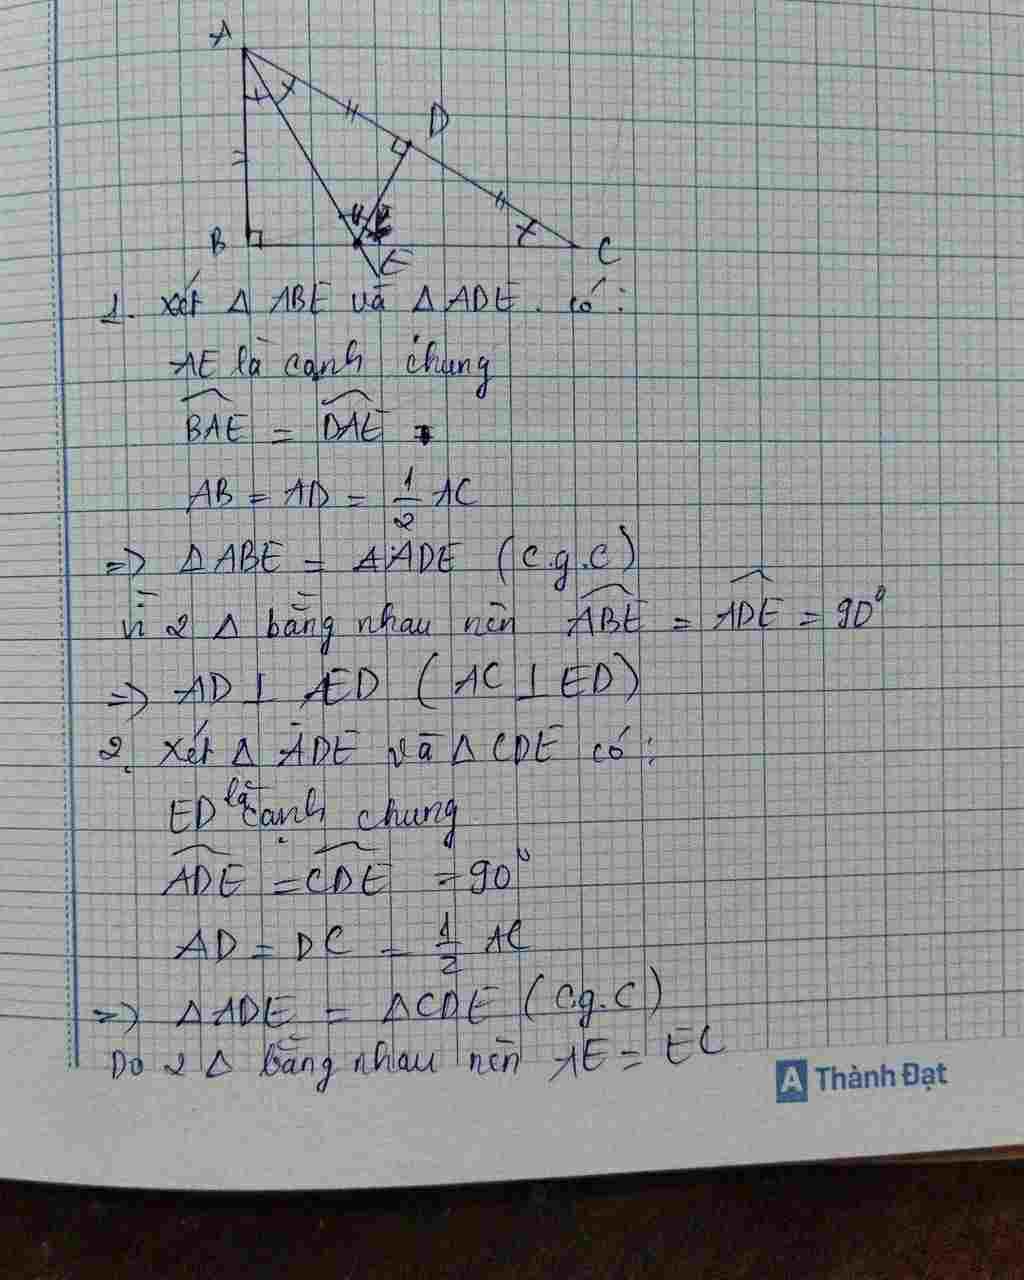 A
D
B
E
C
1. Xét Δ ABE và Δ ADE. có:
AE là cạnh chung
BAE = DAE
AB = AD = 1/2 AC
=> Δ ABE = Δ ADE (c.g.c)
Vì 2 Δ bằng nhau nên ABE = ADE = 90°
=> AD ⊥ ED (AC ⊥ ED)
2. Xét Δ ADE và Δ CDE có:
ED là cạnh chung
ADE = CDE = 90°
AD = DC = 1/2 AC
=> Δ ADE = Δ CDE (c.g.c)
Do 2 Δ bằng nhau nên AE = EC
A Thành Đạt